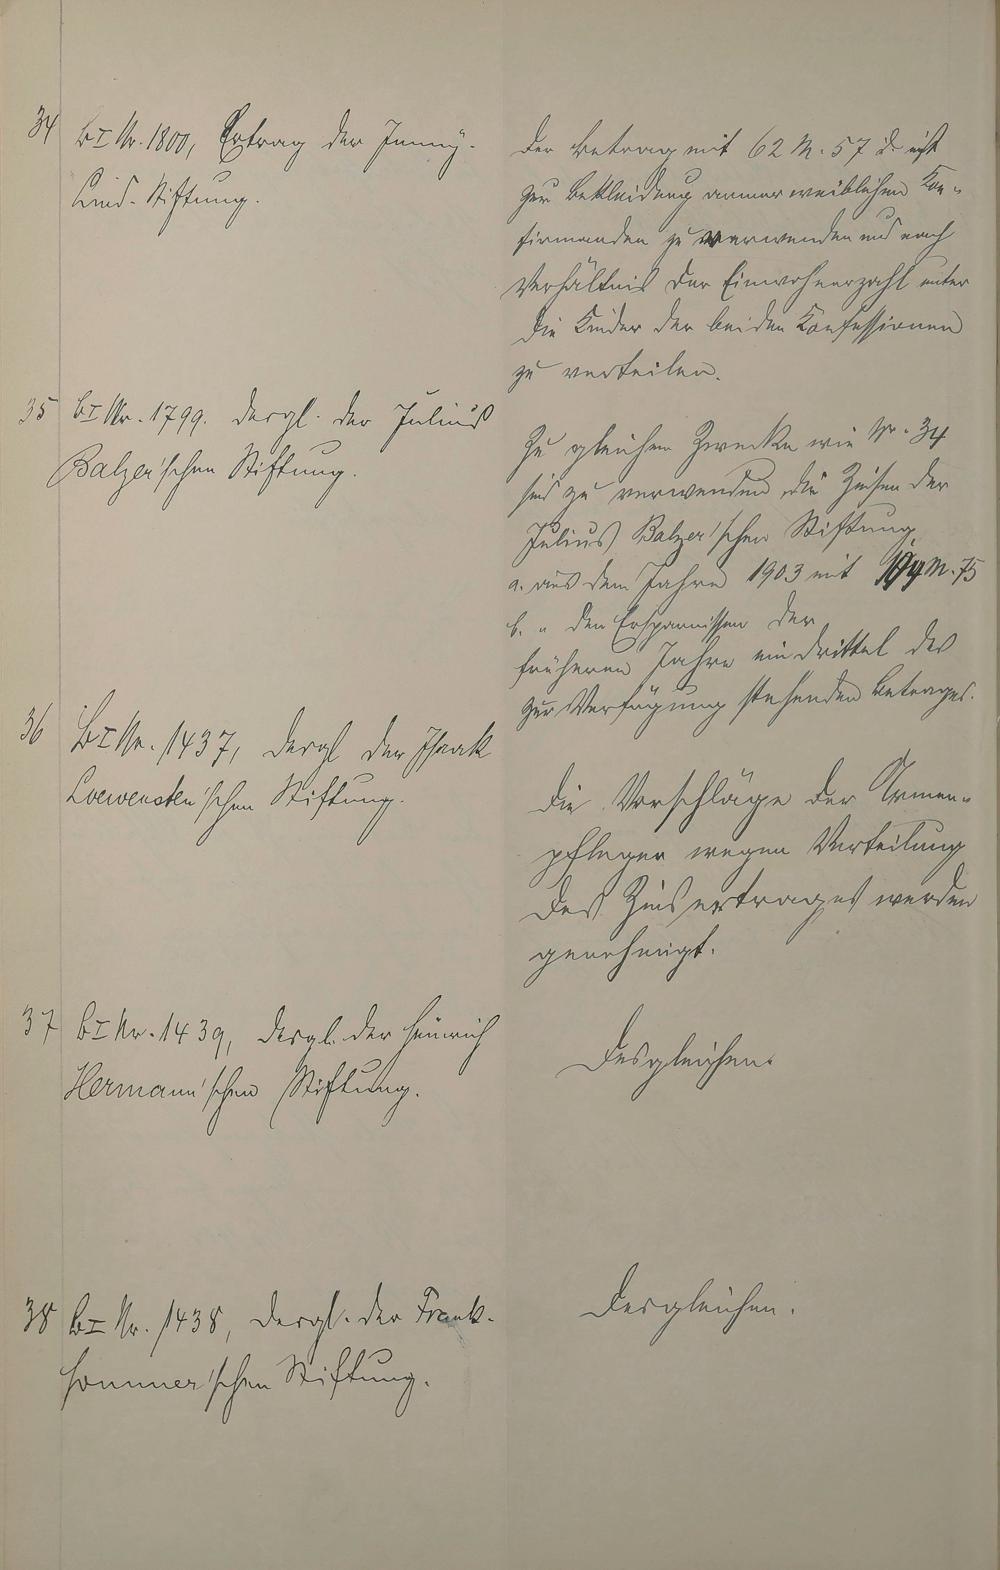 34 B I Nr. 1800, Ertrag der Jenny-
Lind-Stiftung.
Der Betrag mit 62 M. 57 d. ist
zur Bekleidung armer weiblichen Kon-
firmanden zu verwenden und nach
Verhältnis der Einwohnerzahl unter
die Kinder der beiden Konfessionen
zu verteilen.
35 B I Nr. 1799. desgl. der Julius
Balzer'schen Stiftung.
Zu gleichem Zwecke wie Nr. 34
sind zu verwenden die Zinsen der
Julius Balzer'schen Stiftung
a. aus dem Jahre 1903 mit M. 75
b. " den Ersparnissen der
früheren Jahre ein Drittel des
zur Verfügung stehenden Betrages.
36 B I Nr. 1437, desgl der Isaak
Loewensten'schen Stiftung.
Die Vorschläge der Armen-
pfleger wegen Verteilung
des Zinsertrages werden
genehmigt.
37 B I Nr. 1439, desgl. der Heinrich
Hermann'schen Stiftung.
Desgleichen.
38 B I Nr. 1438, desgl. der Frank-
Sommer'schen Stiftung.
Desgleichen.